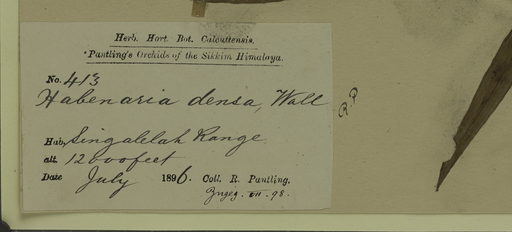 Herb. Hort. Bot. Calcuttensis.
Pantling's Orchids of the Sikkim Himalaya.
No. 413
Habenaria densa, Wall
Hab. Singalelah Range
alt. 12000 feet
Date July 1896. Coll. R. Pantling.
VII. 98.
R.P